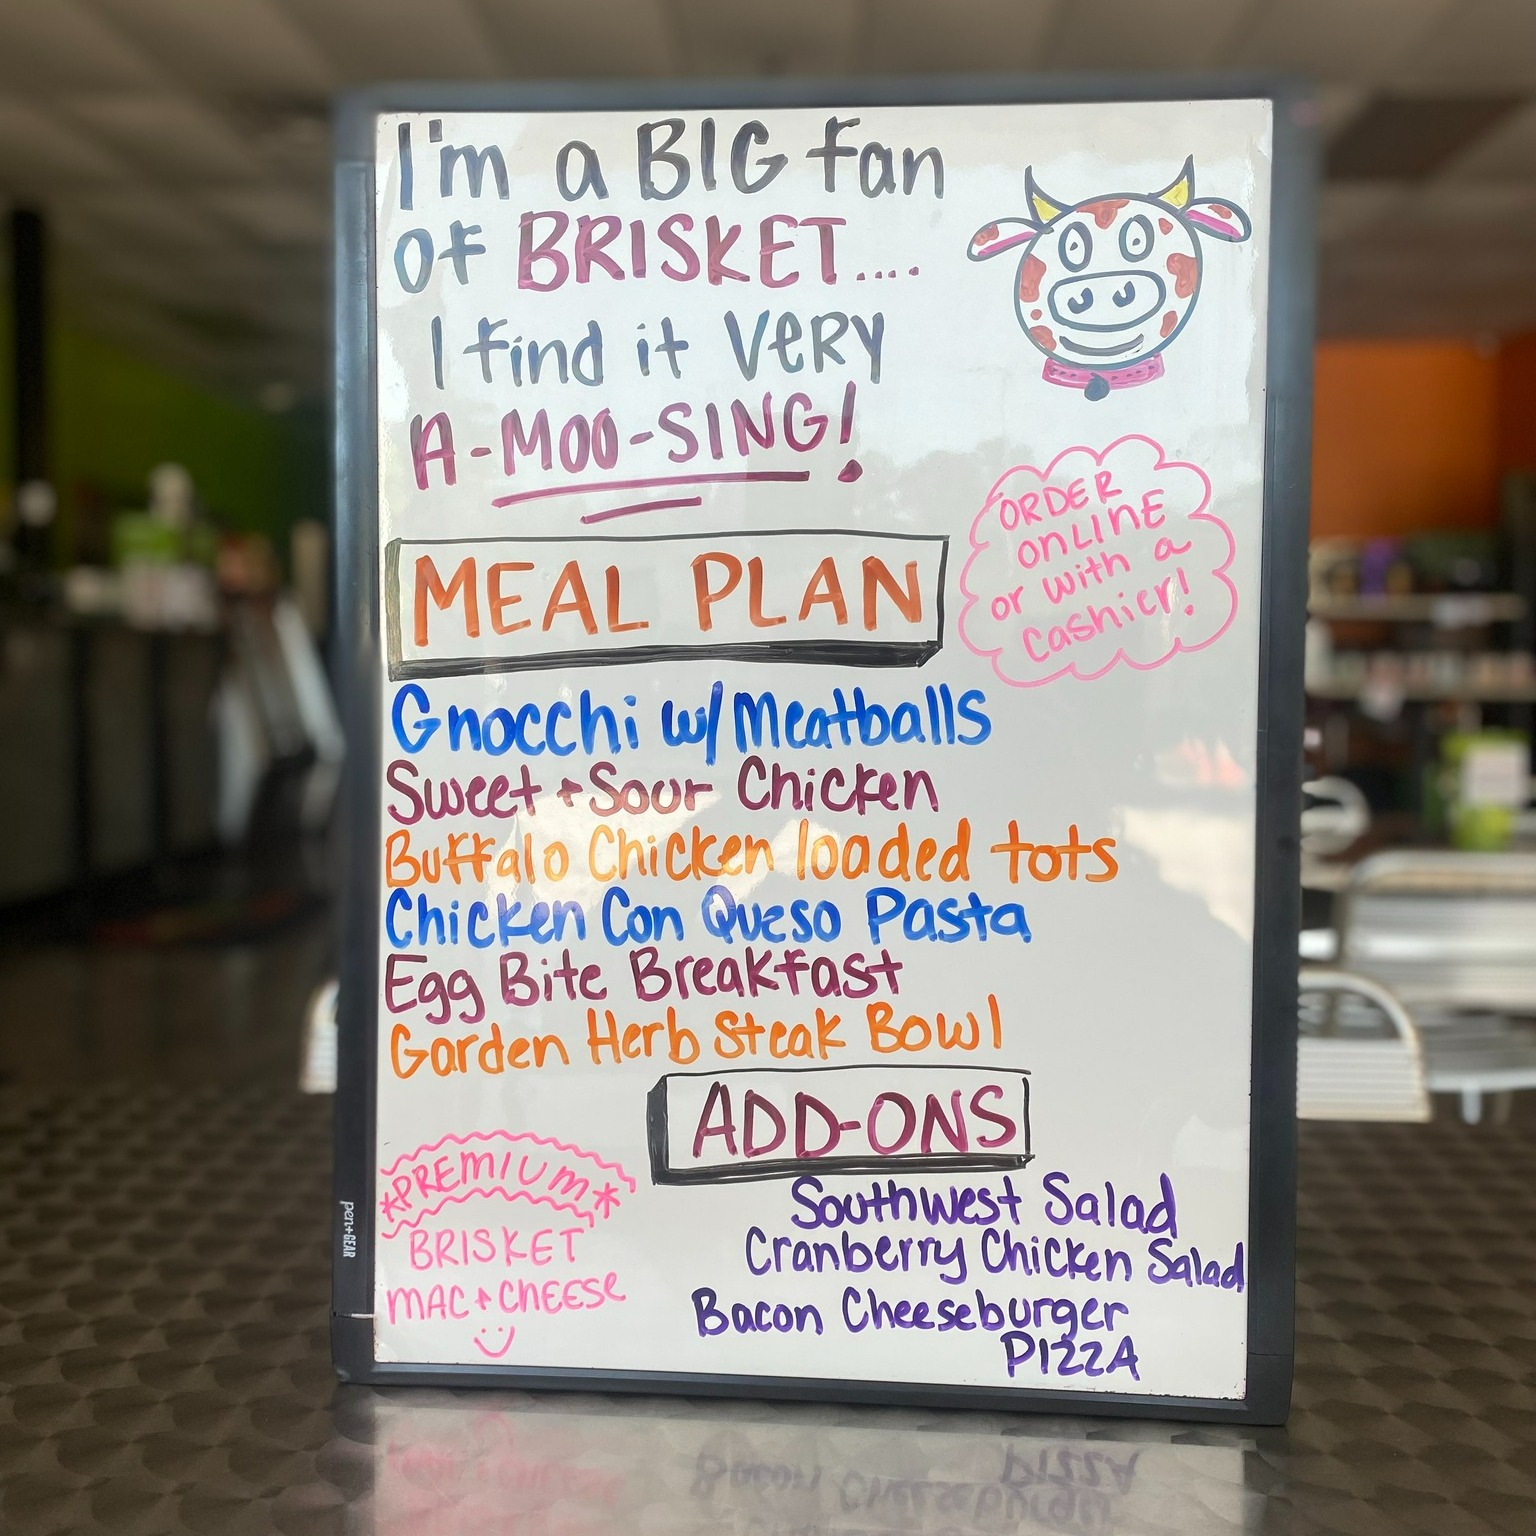 I'm a BIG fan
of BRISKET....
I find it VERY
A-MOO-SING!
ORDER
OnLInE
or with a
cashier!
MEAL PLAN
Gnocchi w/ Meatballs
Sweet + Sour Chicken
Buffalo Chicken loaded tots
Chicken Con Queso Pasta
Egg Bite Breakfast
Garden Herb Steak Bowl
ADD-ONS
Southwest Salad
Cranberry Chicken Salad
Bacon Cheeseburger
PIZZA
*PREMIUM*
BRISKET
MAC + CHEESE
pen+GEAR